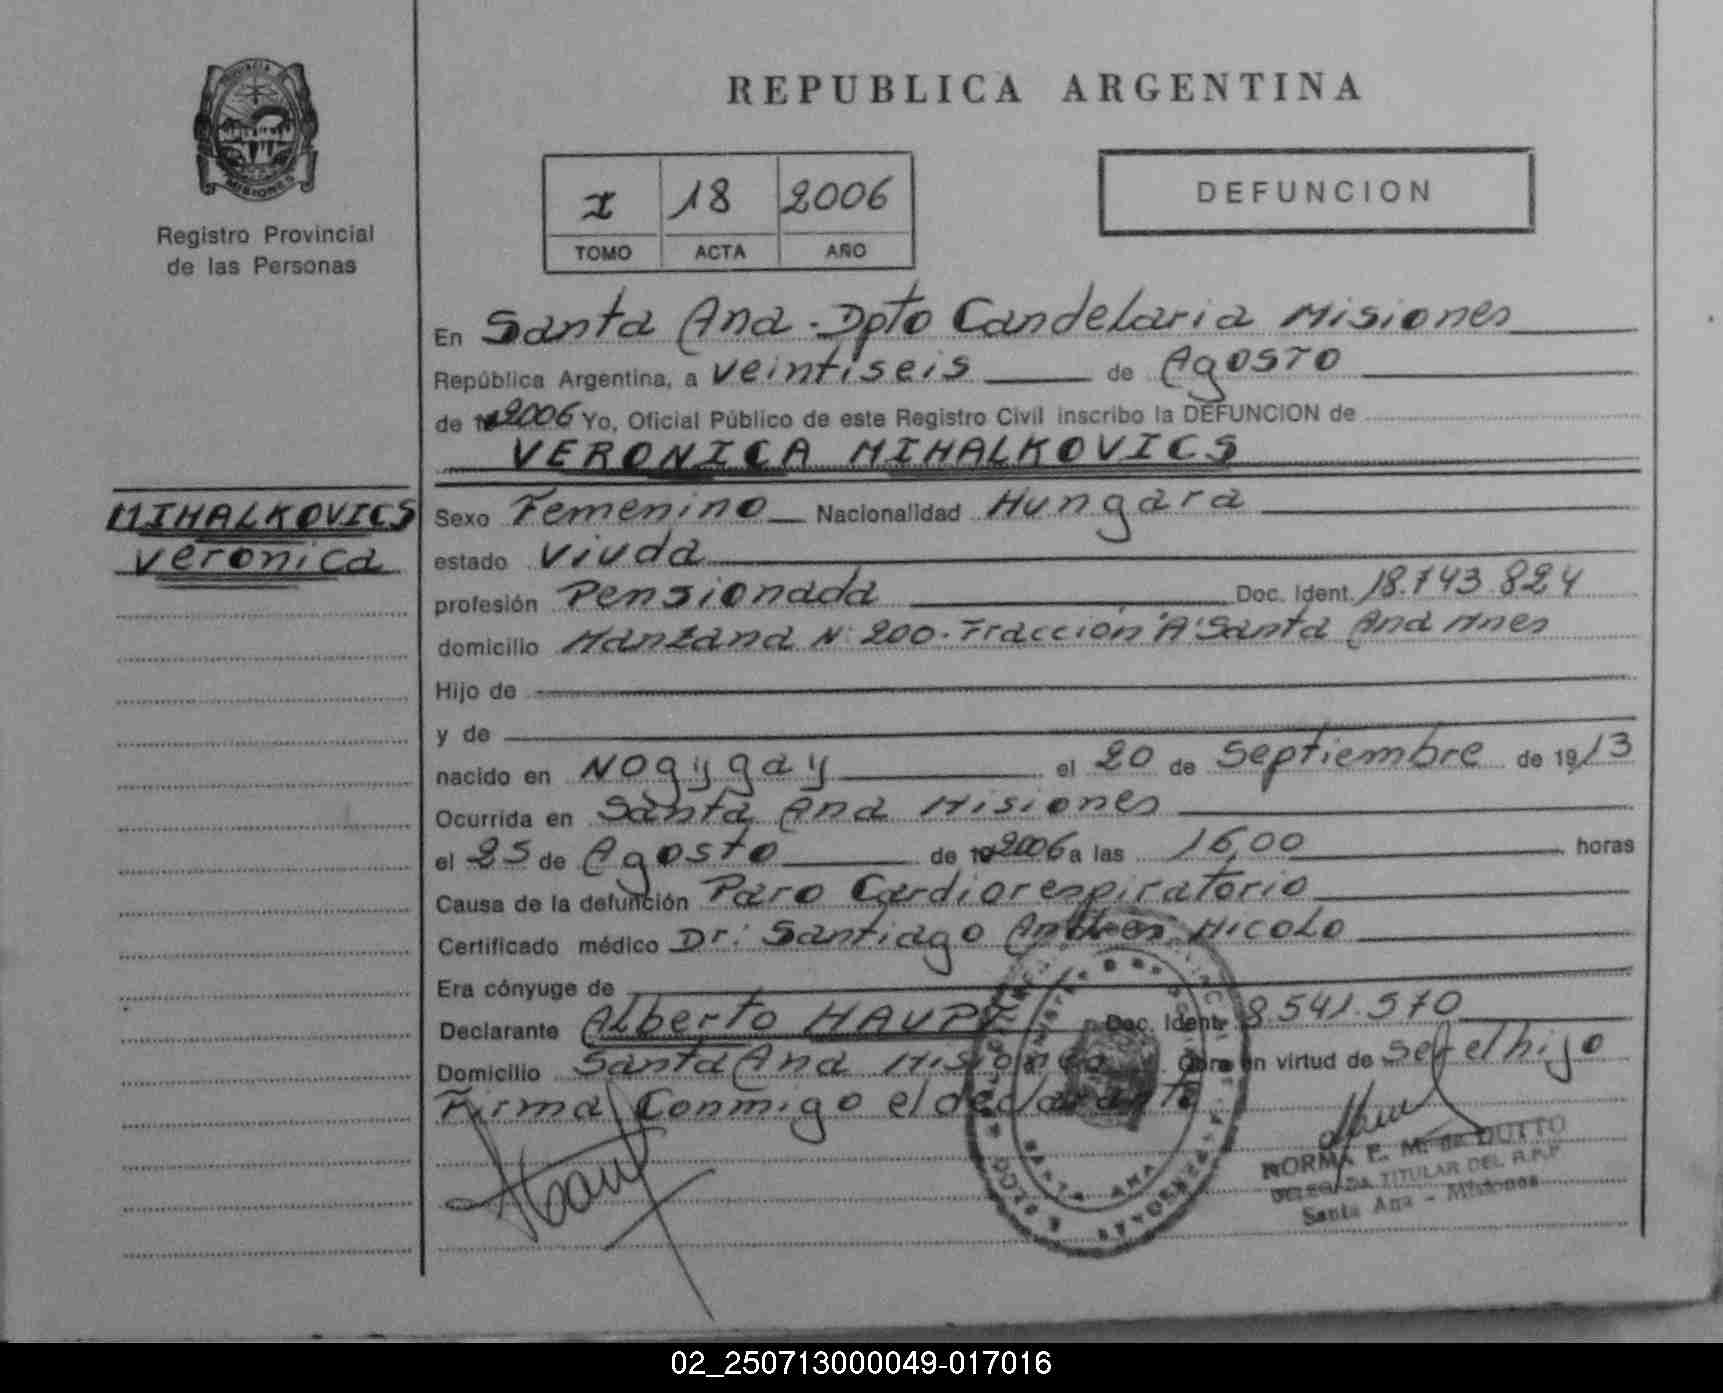 REPUBLICA ARGENTINA
PROVINCIA DE
MISIONES
Registro Provincial
de las Personas
I 18 2006
TOMO ACTA AÑO
DEFUNCION
En Santa Ana - Dpto Candelaria Misiones
República Argentina, a veintiseis de Agosto
de 2006 Yo, Oficial Público de este Registro Civil inscribo la DEFUNCION de
VERONICA MIHALKOVICS
MIHALKOVICS
Veronica
Sexo Femenino Nacionalidad Hungara
estado Viuda
profesión Pensionada Doc. Ident. 18.743.824
domicilio Manzana N: 200 - Fracción "A" Santa Ana Mnes
Hijo de
y de
nacido en Nogygay el 20 de Septiembre de 1913
Ocurrida en Santa Ana Misiones
el 25 de Agosto de 2006 a las 16,00 horas
Causa de la defunción Paro Cardiorespiratorio
Certificado médico Dr: Santiago Andres Micolo
Era cónyuge de
Declarante Alberto HAUPT Doc. Ident. 8.541.570
Domicilio Santa Ana Misiones Obra en virtud de ser el hijo
Firma Conmigo el declarante
SANTA ANA
NORMA E. M. de DUTTO
DELEGADA TITULAR DEL R.P.P.
Santa Ana - Misiones
02_250713000049-017016